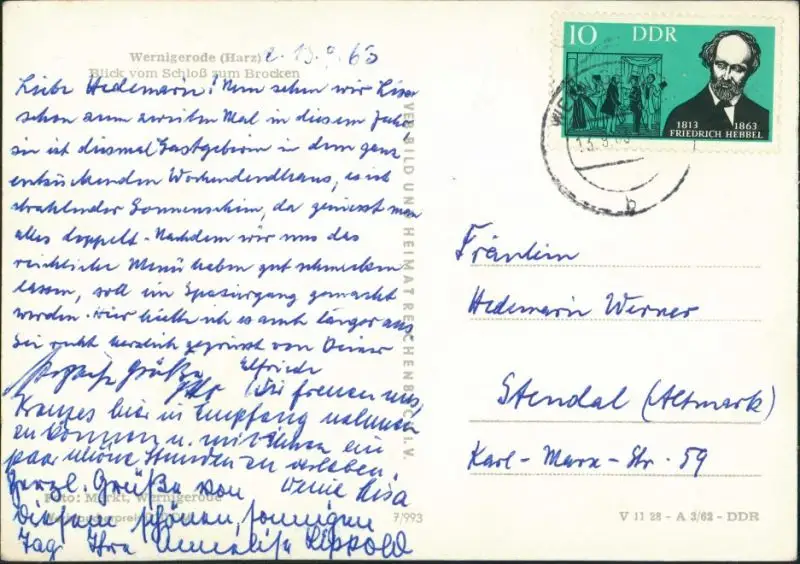 Wernigerode (Harz)
d. 13.9.63
Blick vom Schloß zum Brocken
Liebe Hedemarie! Nun sehen wir Lisa
schon zum zweiten Mal in diesem Jahr,
sie ist diesmal Gastgeberin in dem ganz
entzückenden Wochenendhaus, es ist
strahlender Sonnenschein, da geniesst man
alles doppelt. Nachdem wir uns das
reichliche Menü haben gut schmecken
lassen, soll ein Spaziergang gemacht
werden. Hier hielte ich es auch länger aus.
Sei recht herzlich gegrüsst von Deiner
Elfriede
Grüße
Wir freuen uns,
hier in Empfang nehmen
zu können u. mit ihnen ein
paar schöne Stunden zu verleben.
Deine Lisa
Herzl. Grüße von
diesem schönen, sonnigen
Tag Ihre Annelise Lippold
Foto: Markt, Wernigerode
7/993
VEB BILD UND HEIMAT REICHENBACH I. V.
10 DDR
1813 1863
FRIEDRICH HEBBEL
WER
13.9.63
b
Fräulein
Hedemarie Werner
Stendal (Altmark)
Karl-Marx-Str. 59
V 11 28 - A 3/62 - DDR